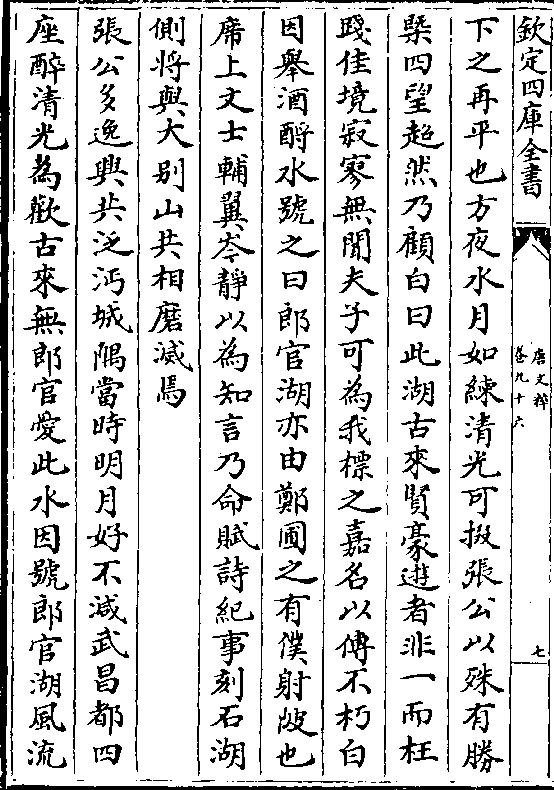 欽定四庫全書
唐文粹
卷九十六
七
下之再平也方夜水月如練清光可掇張公以殊有勝
槩四望超然乃顧白曰此湖古來賢豪遊者非一而枉
踐佳境寂寥無聞夫子可為我標之嘉名以傳不朽白
因舉酒酹水號之曰郎官湖亦由鄭圃之有僕射陂也
席上文士輔翼岑靜以為知言乃命賦詩紀事刻石湖
側將與大别山共相磨滅焉
張公多逸興共泛沔城隅當時明月好不減武昌都四
座醉清光為歡古來無郎官愛此水因號郎官湖風流